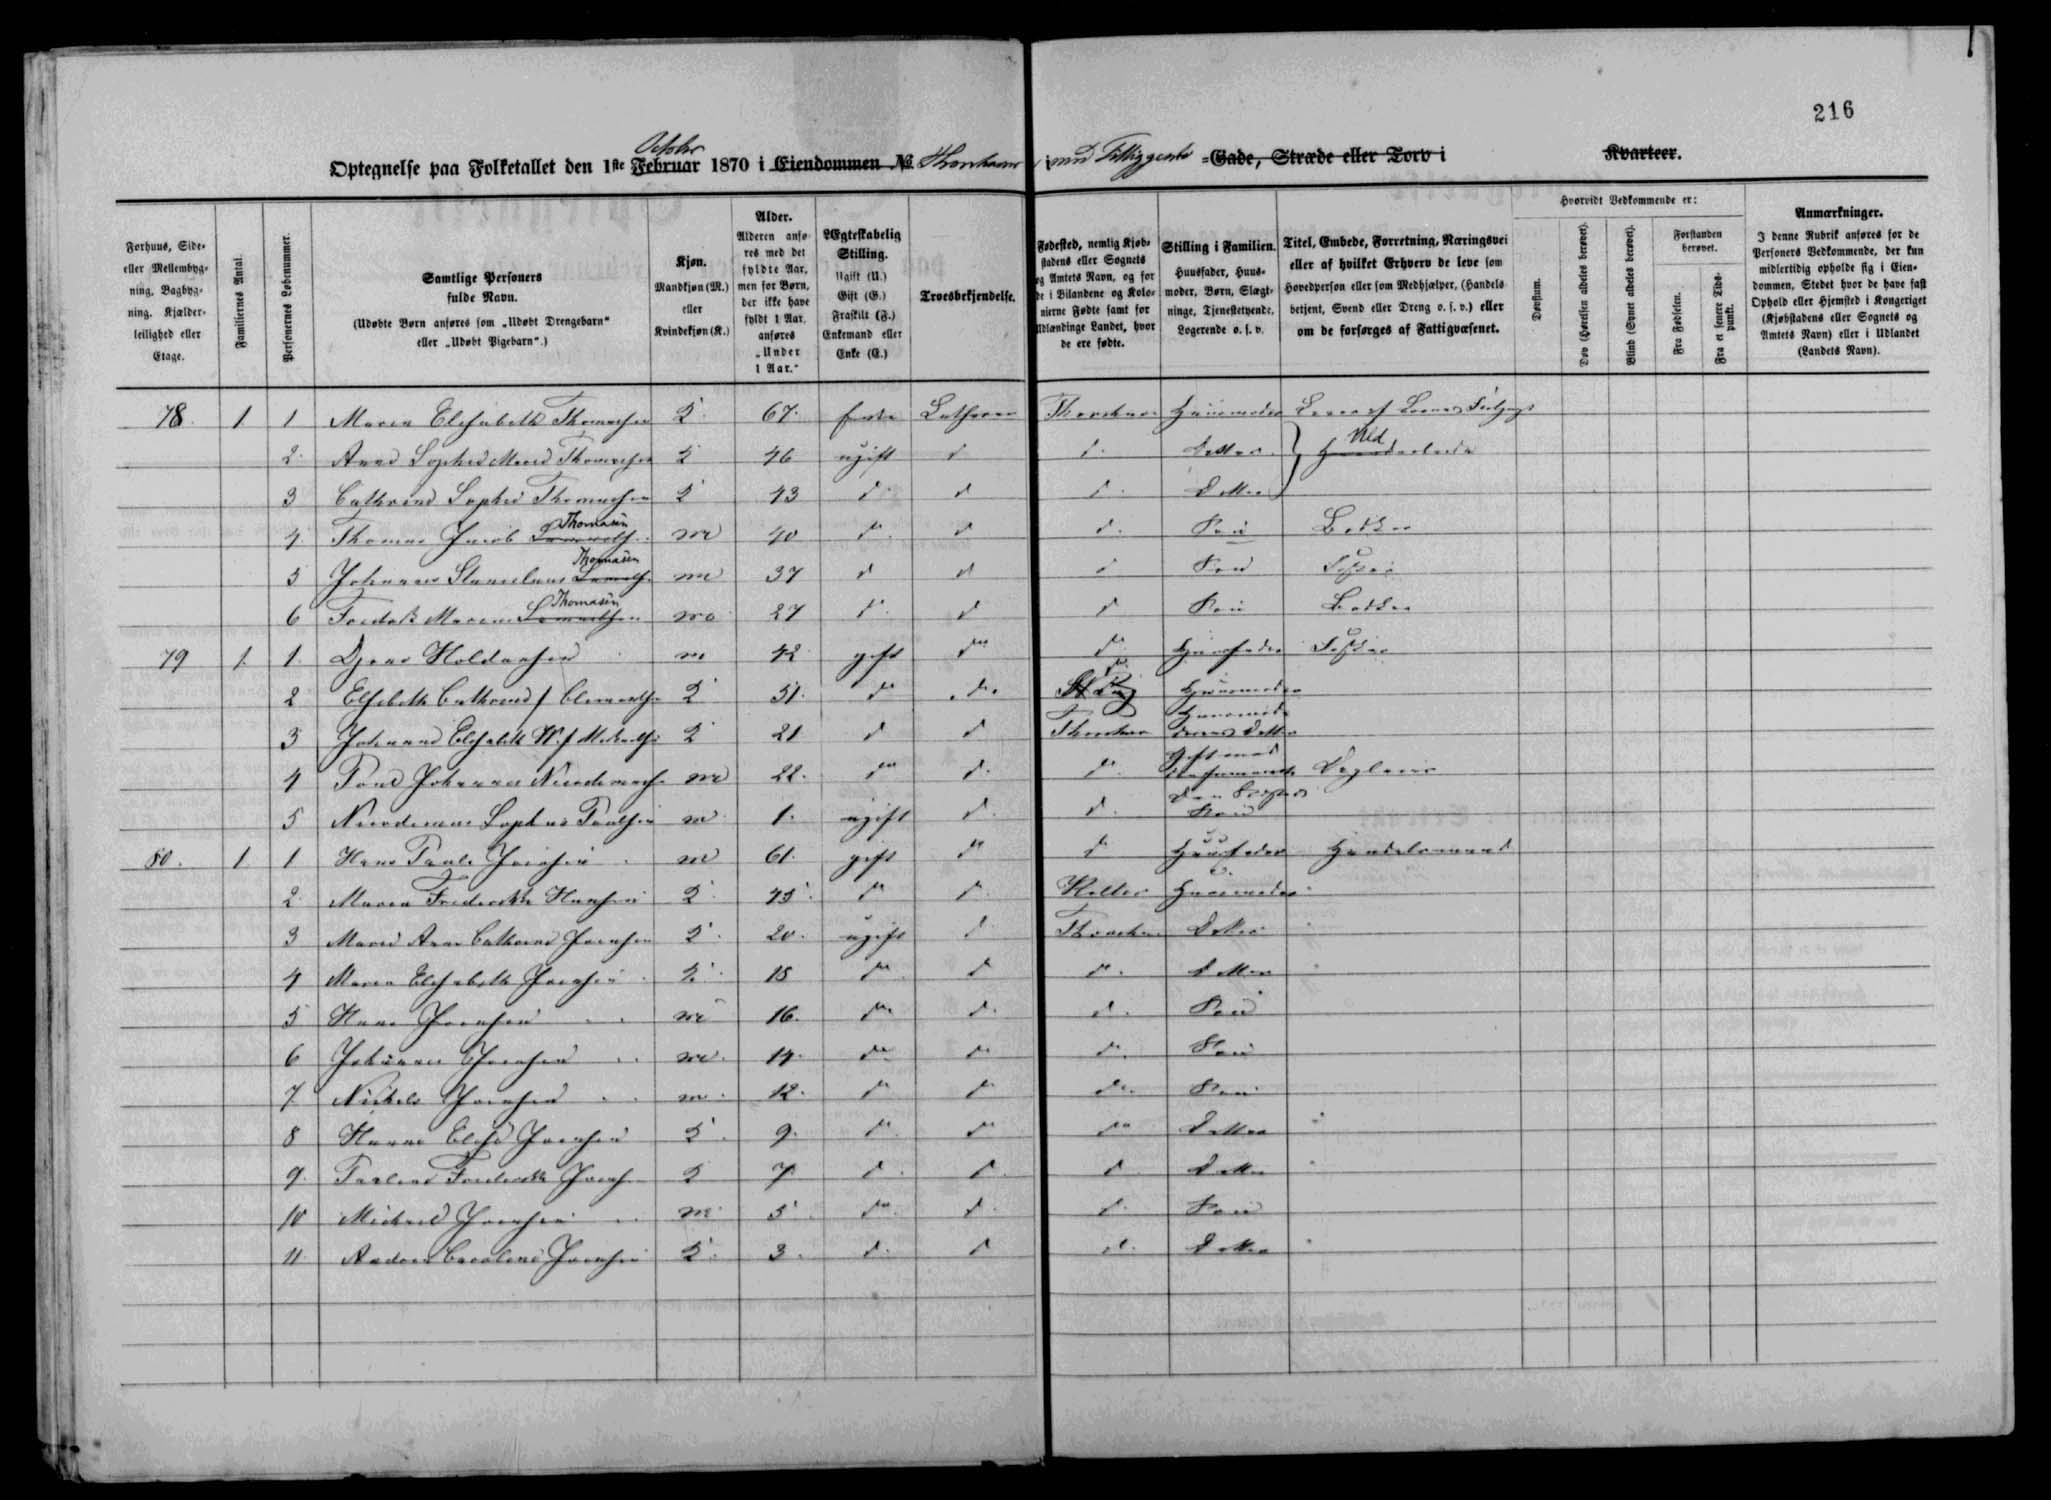 216
October
Optegnelse paa Folketallet den 1ste Februar 1870 i Eiendommen No. Thorshavn med Tilliggende =Gade, Stræde eller Torv i Kvarteer.
Forhuus, Side= eller Mellembyg= ning, Bagbyg= ning, Kjælder= leilighed eller Etage.
Familiernes Antal.
Personernes Løbenummer.
Samtlige Personers fulde Navn. (Udøbte Børn anføres som „Udøbt Drengebarn" eller „Udøbt Pigebarn".)
Kjøn. Mandkjøn (M.) eller Kvindekjøn (K.)
Alder. Alderen anfø= res med det fyldte Aar, men for Børn, der ikke have fyldt 1 Aar, anføres „Under 1 Aar."
Ægteskabelig Stilling. Ugift (U.) Gift (G.) Fraskilt (F.) Enkemand eller Enke (E.)
Troesbekjendelse.
Fødested, nemlig Kjøb= stadens eller Sognets og Amtets Navn, og for de i Bilandene og Kolo= nierne Fødte samt for Udlændinge Landet, hvor de ere fødte.
Stilling i Familien. Huusfader, Huus= moder, Børn, Slægt= ninge, Tjenestetyende, Logerende o. s. v.
Titel, Embede, Forretning, Næringsvei eller af hvilket Erhverv de leve som Hovedperson eller som Medhjælper, (Handels= betjent, Svend eller Dreng o. s. v.) eller om de forsørges af Fattigvæsenet.
Hvorvidt Vedkommende er:
Døvstum.
Døv (Hørelsen aldeles berøvet).
Blind (Synet aldeles berøvet).
Forstanden berøvet.
Fra Fødselen.
Fra et senere Tids= punkt.
Anmærkninger. I denne Rubrik anføres for de Personers Vedkommende, der kun midlertidig opholde sig i Eien= dommen, Stedet hvor de have fast Ophold eller Hjemsted i Kongeriget (Kjøbstadens eller Sognets og Amtets Navn) eller i Udlandet (Landets Navn).
78. 1 1 Maren Elisabeth Thomasen K. 67. Enke Lutheran Thorshavn Huusmoder Lever af Børnenes
2. Anne Sophie Marie Thomasen K 46 ugift d d. Datter Uld
3 Cathrine Sophie Thomasen K 43 d d d. Datter
Thomasen
4. Thomas Jacob m 40 d. d d. Søn Bødker
Thomasen
5 Johannes m 37 d d d Søn Fisker
Thomasen
6 Fredrik m 27 d. d d Søn Bødker
79 1. 1. Djoni Holdansen m 42 gift do do Huusfader Fisker
do
2 Elsebeth Cathrine f. Clementsen K 51. do do. Huusmoder
3 Johanne Elisabeth K 21 d d Thorshavn Huusmoderens Datter
4 Poul Johannes m 22. do d. do. Gift med Daglejer
5 Nicodemus Sophus Poulsen m 1. ugift d. d. Søn
80. 1 1 Hans Paule Joensen m 61. gift do d Huusfader Handelsmand
2. Maren Frederikke Hansen K. 45. do d. Kollefj Huusmoder
3 Marie Anne Cathrine Joensen K. 20. ugift d Thorshavn Datter
4 Maren Elisabeth Joensen K. 18 do d do. Datter
5 Hans Joensen m 16. do d. d. Søn
6 Johannes Joensen m. 14. do do d. Søn
7. Nickels Joensen m. 12. do do do. Søn
8 Hanne Elise Joensen K. 9. do do do Datter
9. Pauline Frederikke Joensen K 7. d d. d Datter
10 Michael Joensen m. 5. do. d. d. Søn
11. Andrea Caroline Joensen K. 3. d. d d. Datter